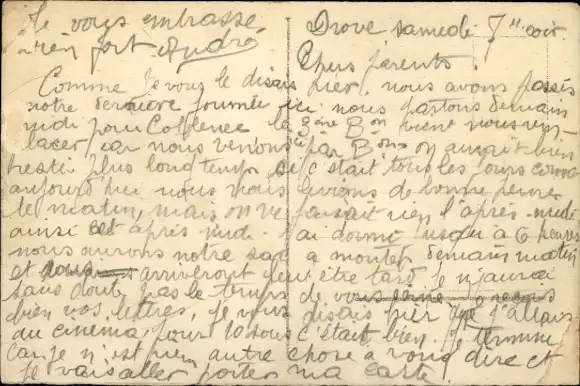 Drove samedi 7h soir
Chers parents
Comme je vous le disais hier, nous avons passés
notre dernière journée ici nous partons demain
midi pour Coblence le 3ème Bon vient nous rem
placer, car nous venions par Bons on aurait bien
resté plus longtemps si c'était tous les jours comme
aujourd'hui nous nous levions de bonne heure
le matin, mais on ne faisait rien l'après-midi
ainsi cet après-midi j'ai dormi jusqu'à 6 heures
nous aurons notre sac a monter demain matin
et arriveront peut être tard je n'aurai
sans doute pas le temps de vous j'ai reçus
bien vos lettres, je vous disais hier que j'allais
du cinéma pour 10 sous c'était bien. Je termine
car je n'est rien autre chose a vous dire et
je vais aller porter ma carte.
Je vous embrasse
bien fort André